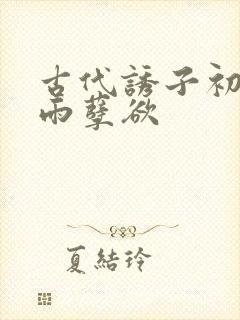 古代誘子初
雨孽欲
夏結玲